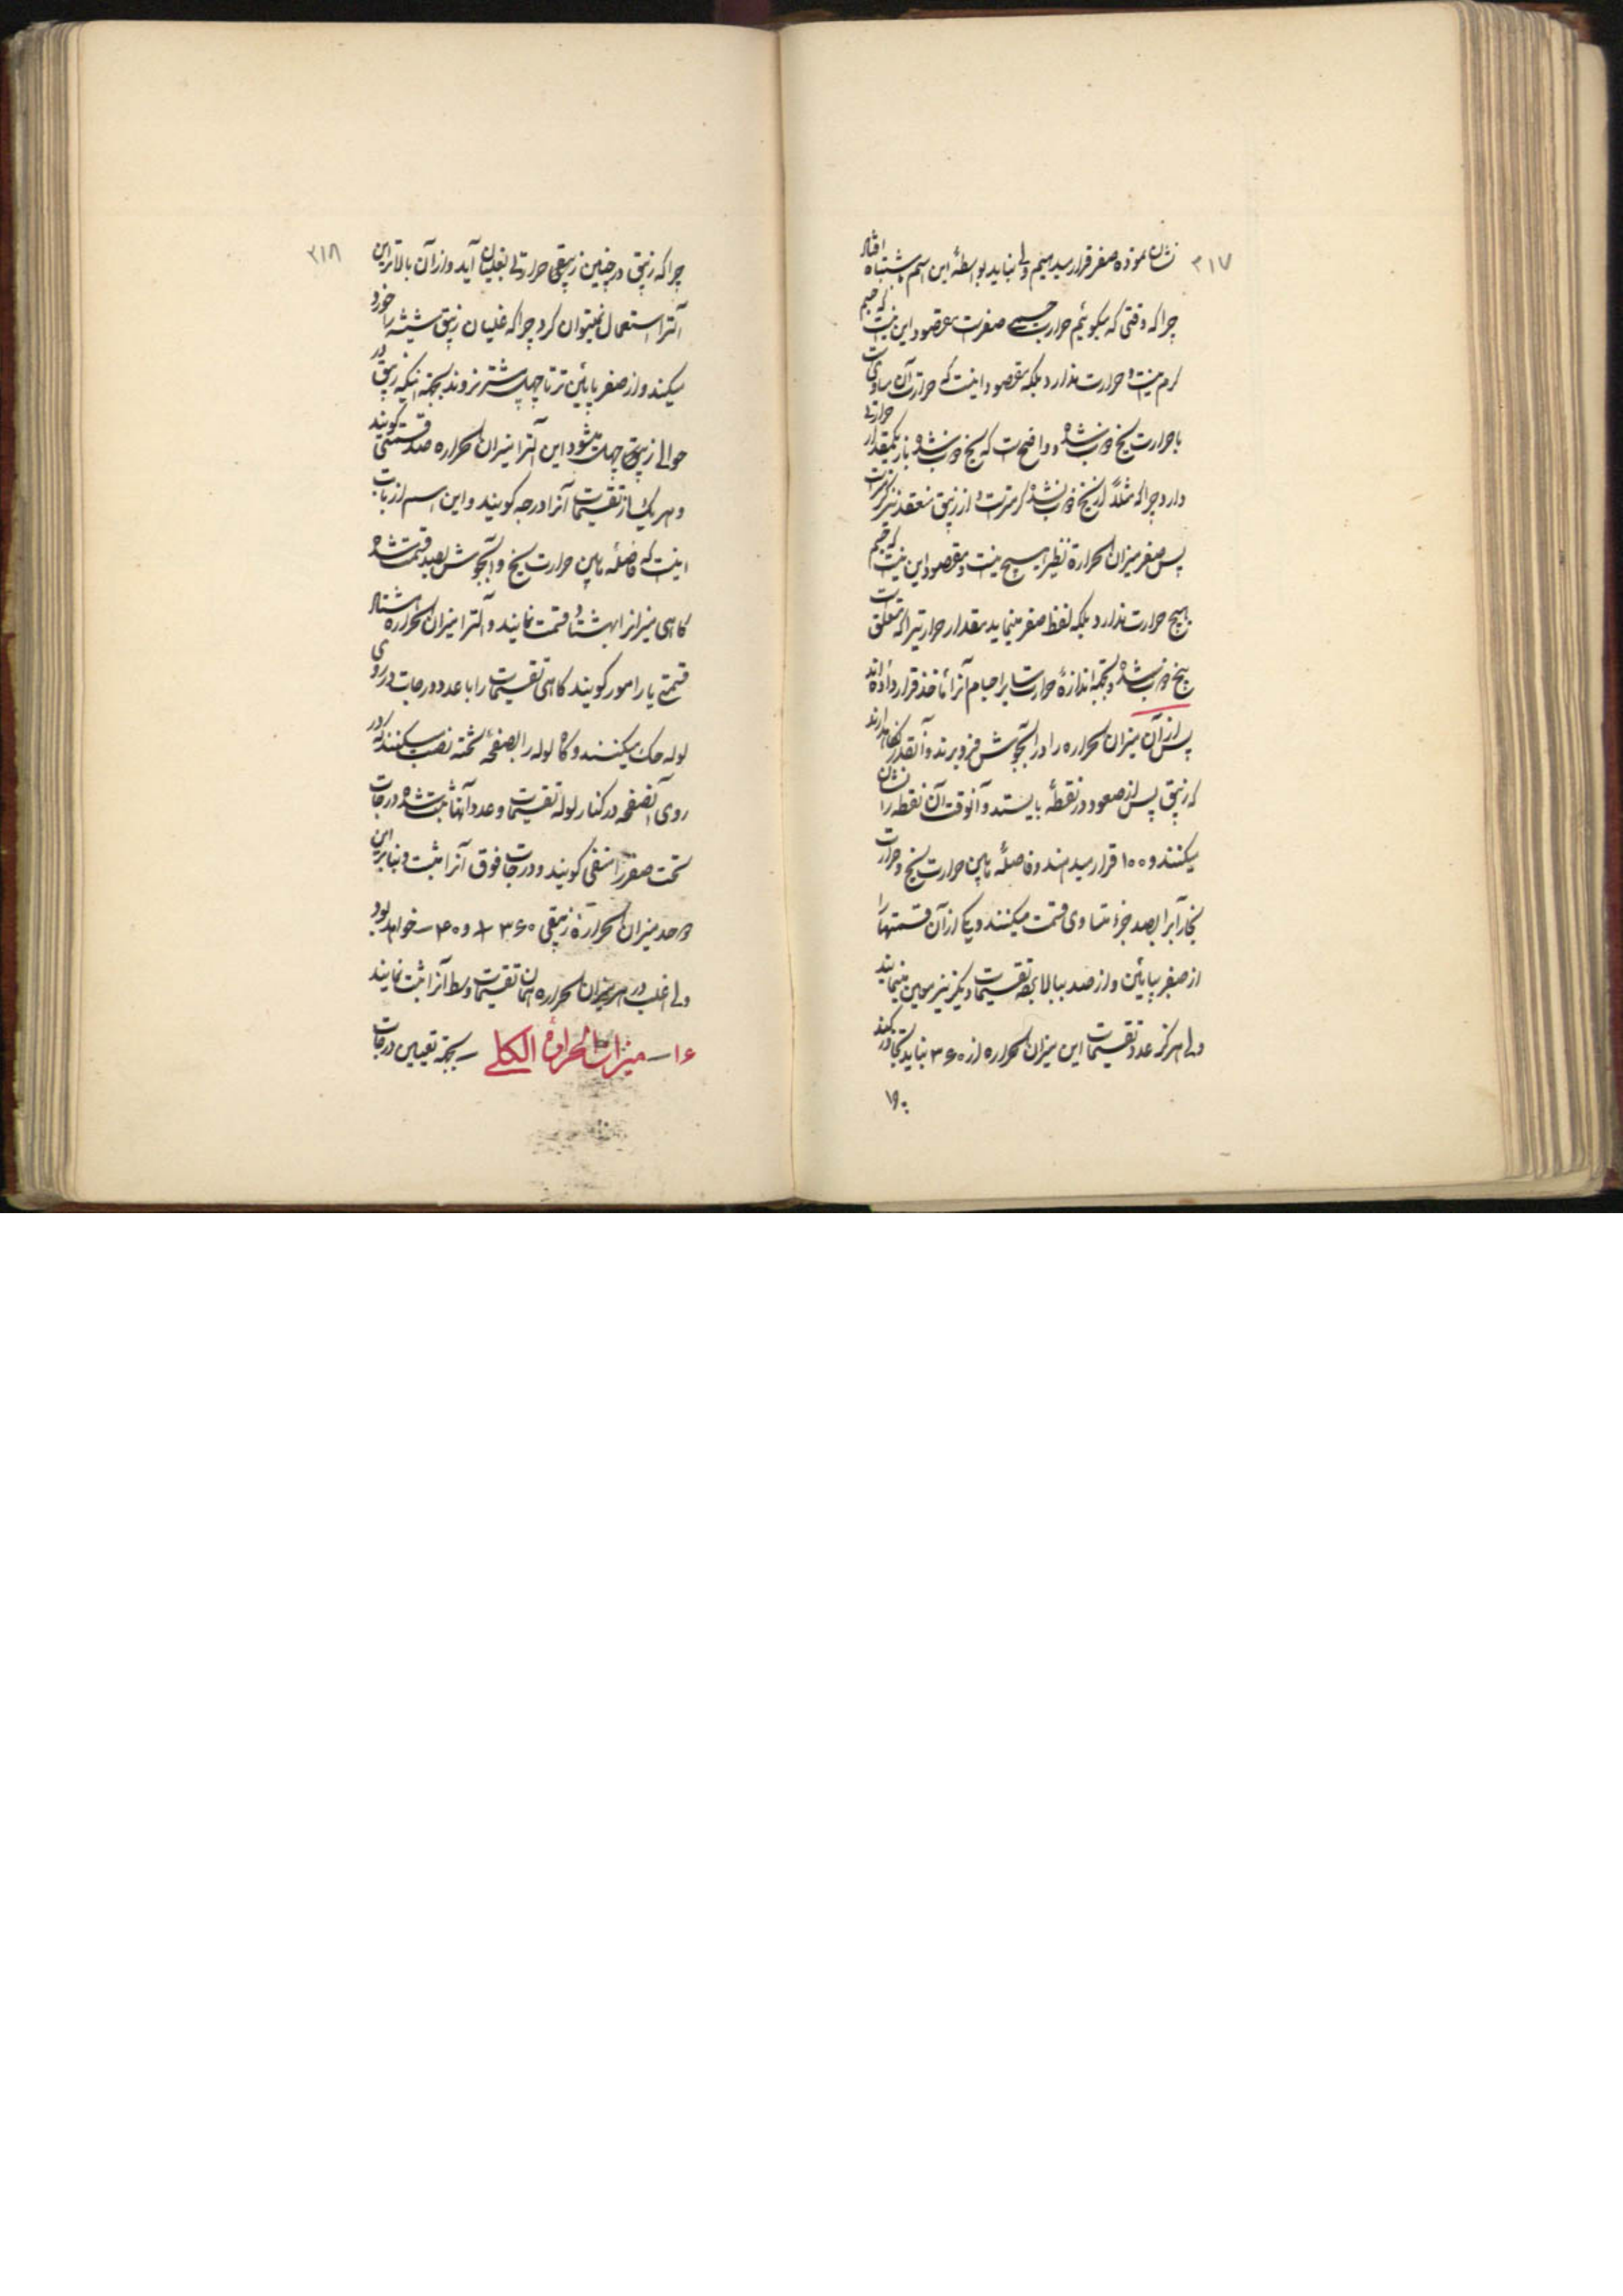 ۲۱۷
نشان نموده صفر قرار میدهیم ولی نباید بواسطهٔ این اسم باشتباه افتاد
چرا که وقتی که میگوئیم حرارت جسمی صفرست مقصود این نیست که جسم
گرم نیست و حرارت ندارد بلکه مقصود اینست که حرارت آن مساوی است
با حرارت یخ ذوب شده و واضح است که یخ ذوب شده باز یکمقدار حرارتی
دارد چرا که مثلاً از یخ ذوب نشده گرمترست و از زیبق منعقد نیز گرمترست
پس صفر میزان الحرارة نظیر هیچ نیست و مقصود این نیست که جسم
هیچ حرارت ندارد بلکه لفظ صفر مینماید مقدار حرارتیرا که متعلق است
بیخ ذوب شده و بجهة اندازهٔ حرارت سایر اجسام آنرا مأخذ قرار داده‌اند
پس از آن میزان الحراره را در آبجوش فرو برند و آنقدر نگاهدارند
که زیبق پس از صعود در نقطهٔ بایستد و آنوقت آن نقطه را نشان
میکنند و ۱۰۰ قرار میدهند و فاصلهٔ مابین حرارت یخ و حرارت
بخار آبرا بصد جزء متساوی قسمت میکنند و یکی از آن قسمتها را
از صفر بپائین و از صد ببالا بجهة تقسیمات دیگر نیز معین مینمایند
ولی هرگز عدد تقسیمات این میزان الحراره از ۳۶۰ نباید تجاوز کند
۲۱۸
چرا که زیبق در چنین حرارتی بغلیان آید و از آن بالاتر این
آلترا استعمال نمیتوان کرد چرا که غلیان زیبق شیشه را خورد
میکند و از صفر پایین‌تر تا چهل بیشتر نروند بجهة اینکه زیبق در
حوالی چهل منعقد میشود این آلترا میزان الحراره صد قسمتی گویند
و هر یک از تقسیمات آنرا درجه گویند و این اسم از بابت
اینست که فاصله مابین حرارت یخ و آبجوش بصد قسمت شده
گاهی میزانرا بهشتاد قسمت نمایند و آلترا میزان الحراره هشتاد
قسمتی یا رامور گویند گاهی تقسیمات را با عدد درجات در روی
لوله حک میکنند و گاه لوله را بصفحهٔ تخته نصب میکنند که در
روی آنصفحه در کنار لوله تقسیمات و عدد آنها ثبت شده درجات
تحت صفر را منفی گویند و درجات فوق آنرا مثبت و بنابراین
دو حد میزان الحرارة زیبقی ۳۶۰ + و ۴۰ − خواهد بود
ولی اغلب در هر میزان الحراره همان تقسیمات وسط آنرا ثبت نمایند
۱۶ــ میزان الحرارة الکلی ــ بجهة تعیین درجات